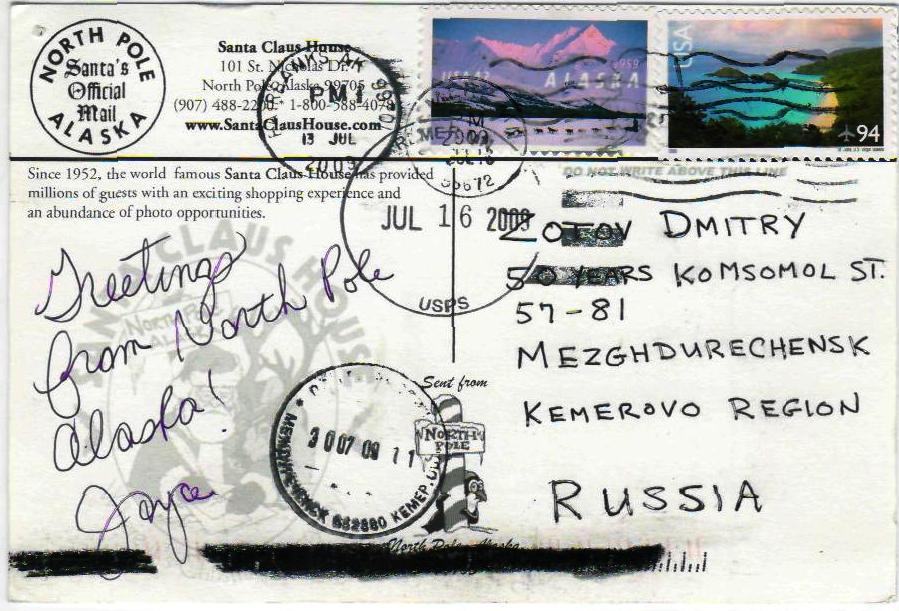 NORTH POLE
Santa's
Official
Mail
ALASKA
Santa Claus House
101 St. Nicholas Dr.
North Pole, Alaska 99705
(907) 488-2200 • 1-800-588-4078
www.SantaClausHouse.com
FAIRBANKS AK 997
PM 1
13 JUL
2009
USA
ALASKA
USA
94
Since 1952, the world famous Santa Claus House has provided
millions of guests with an exciting shopping experience and
an abundance of photo opportunities.
DO NOT WRITE ABOVE THIS LINE
JUL 16 2009
USPS
SANTA CLAUS HOUSE
NORTH POLE
ALASKA
Greetings
from North Pole
Alaska!
Joyce
ZOTOV DMITRY
50 YEARS KOMSOMOL ST.
57-81
MEZGHDURECHENSK
KEMEROVO REGION
RUSSIA
30 07 09 11
652880 КЕМЕР.
Sent from
NORTH
POLE
North Pole, Alaska